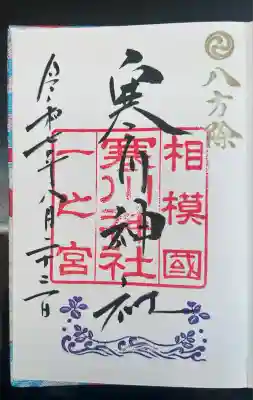 八方除
相模國
寒川神社
一之宮
寒川神社
令和七年八月二十三日